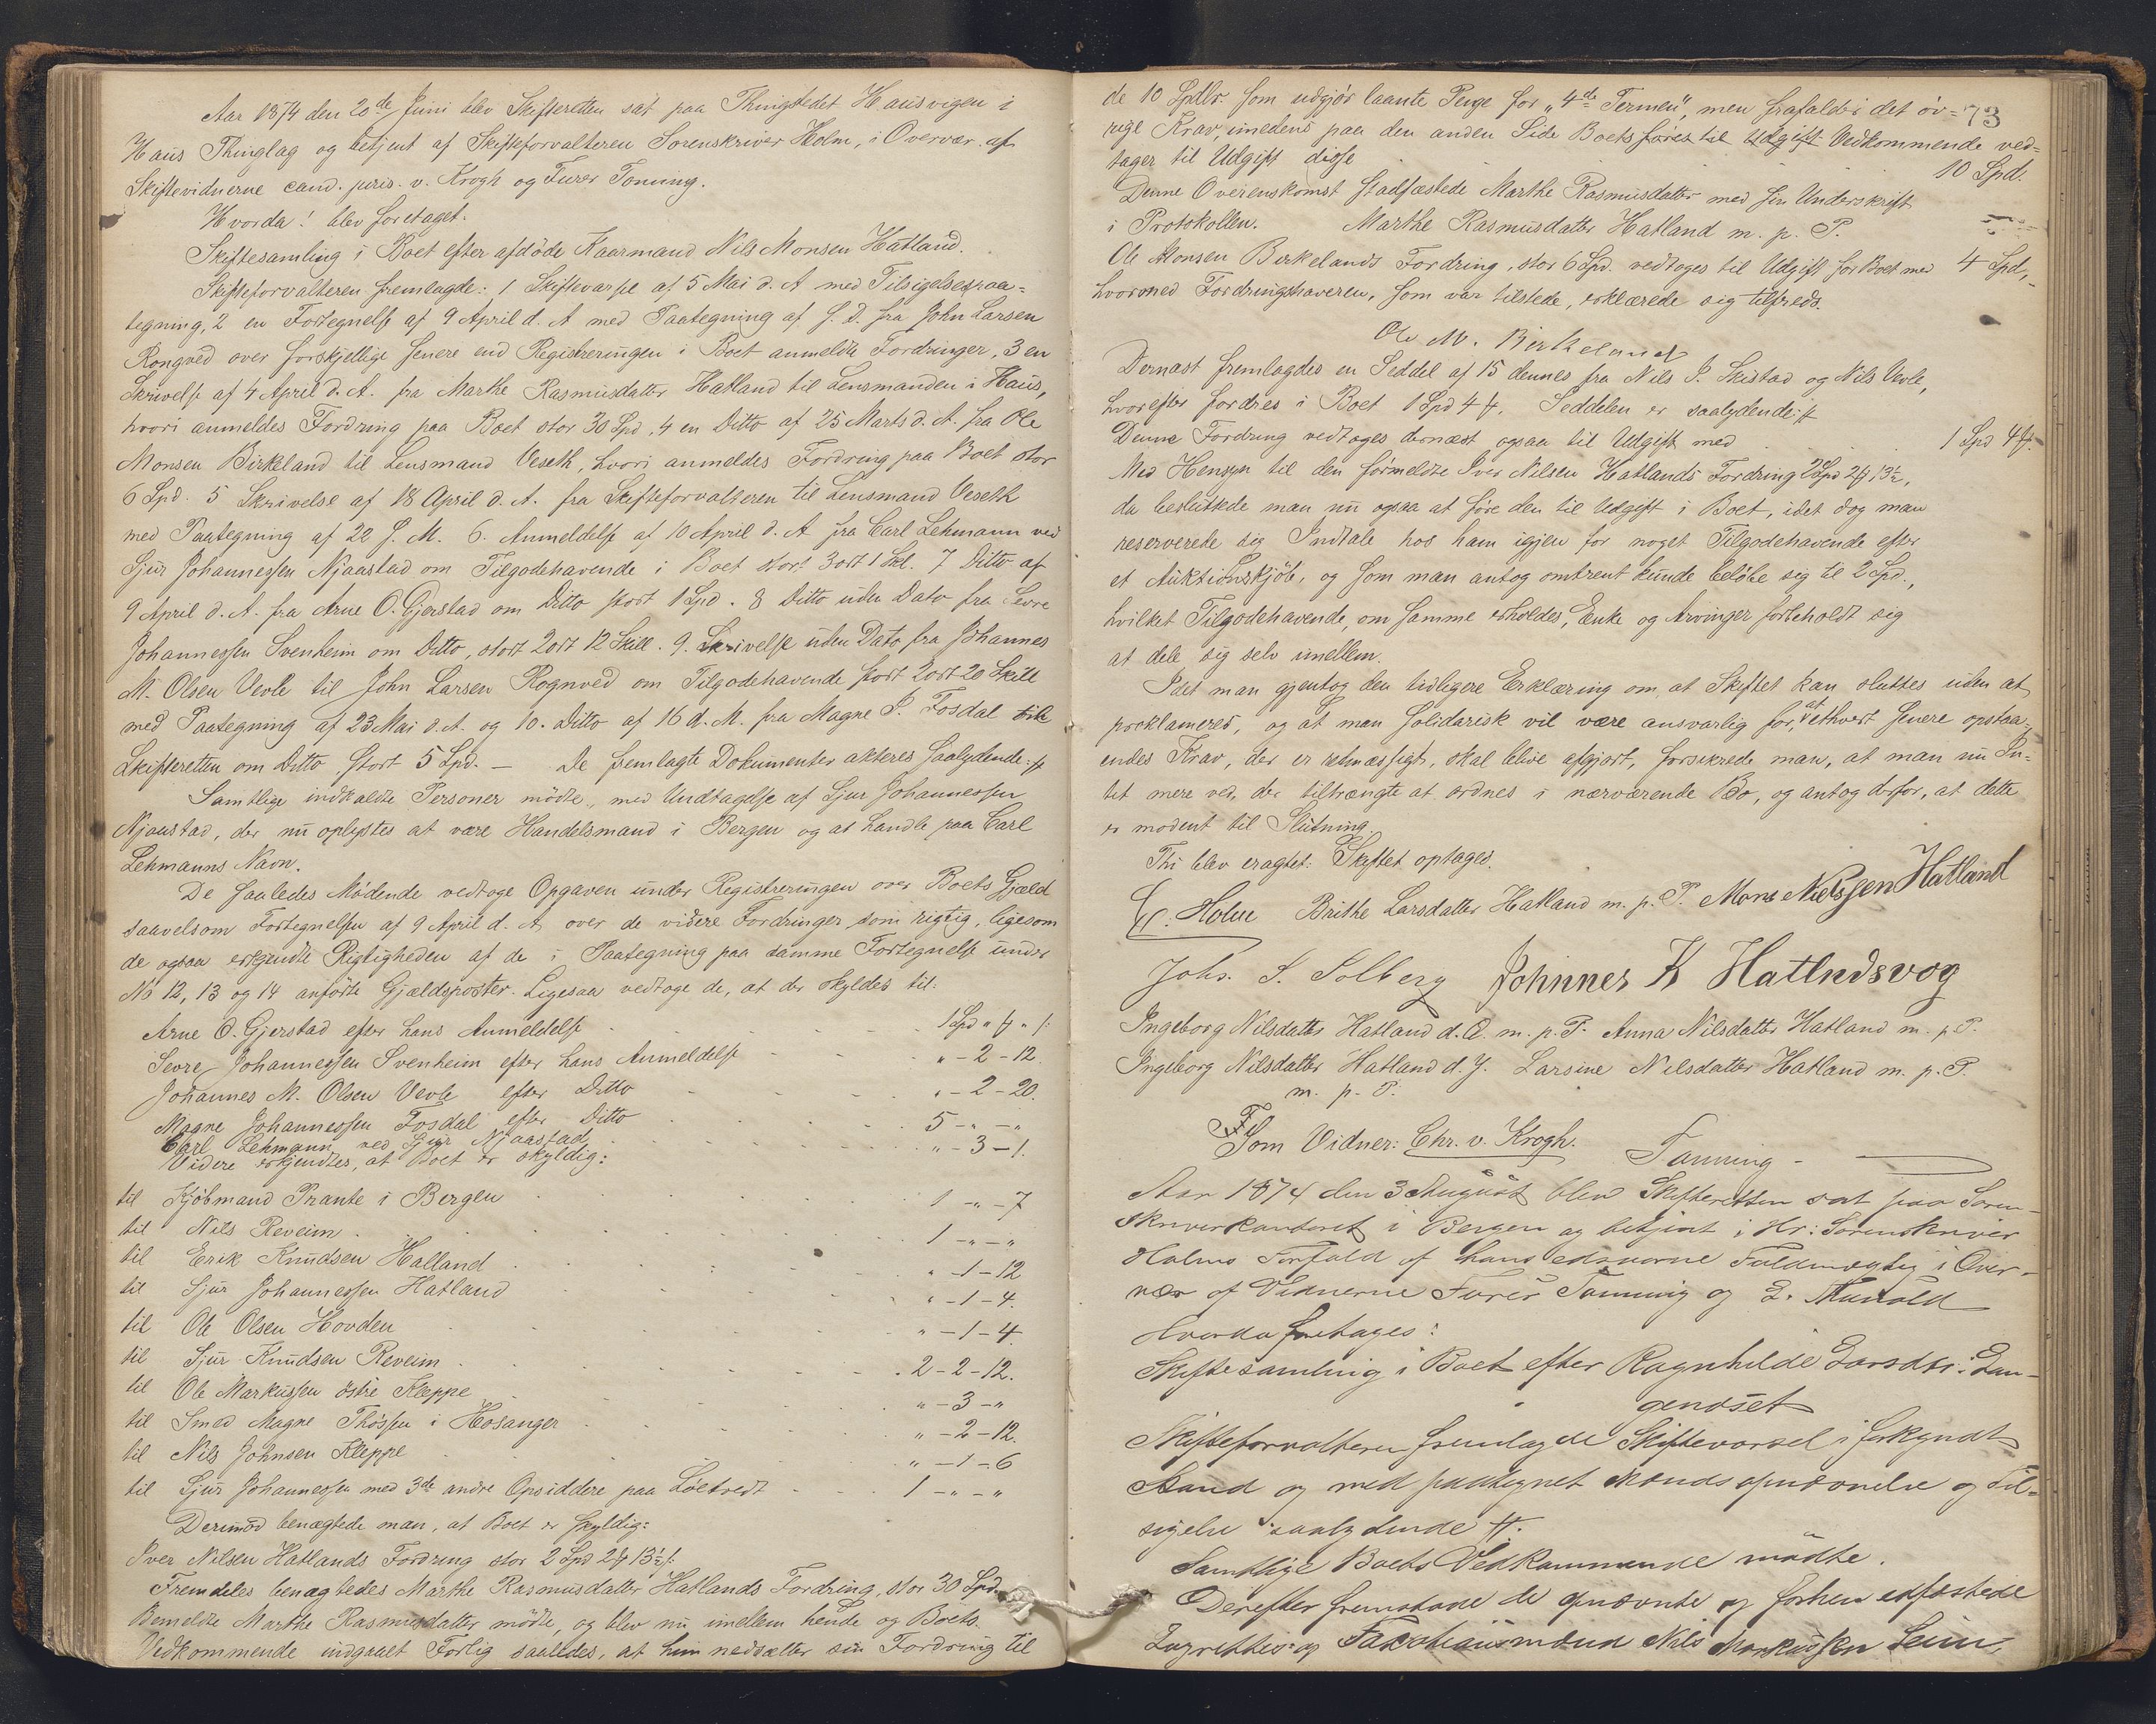 Aar 1874 den 20de Juni blev Skifteretten sat paa Thingstedet Hausvigen i
Haus Thinglag og betjent af Skifteforvalteren Sorenskriver Holm, i Overvær af
Skiftevidnerne cand. juris. v. Krogh og Furer Tonning.
Hvorda! blev foretaget.
Skiftesamling i Boet efter afdöde Kaarmand Nils Monsen Hatland.
Skifteforvalteren fremlagde: 1 Skiftevarsel af 5 Mai d. A med Tilsigelsespaa=
tegning, 2 en Fortegnelse af 9 April d. A med Paategning af s. d. fra John Larsen
Rongved over forskjellige senere end Registreringen i Boet anmeldte Fordringer, 3 en
Skrivelse af 4 April d. A. fra Marthe Rasmusdatter Hatland til Lensmanden i Haus,
hvori anmeldes Fordring paa Boet stor 30 Spd, 4 en Ditto af 25 Marts d. A. fra Ole
Monsen Birkeland til Lensmand Veseth, hvori anmeldes Fordring paa Boet stor
6 Spd. 5 Skrivelse af 18 April d. A. fra Skifteforvalteren til Lensmand Veseth
med Paategning af 22 s. M. 6. Anmeldelse af 10 April d. A fra Carl Lehmann ved
Sjur Johannessen Njaastad om Tilgodehavende i Boet stort 3 ort 1 Skl. 7 Ditto af
9 April d. A. fra Arne O. Gjerstad om Ditto stort 1 Spd. 8 Ditto uden Dato fra Sevre
Johannessen Svenheim om Ditto, stort 2 ort 12 Skill. 9. Skrivelse uden Dato fra Johannes
M. Olsen Vevle til John Larsen Rognved om Tilgodehavende stort 2 ort 20 Skill
med Paategning af 23 Mai d. A. og 10. Ditto af 16 d. M. fra Magne J. Fosdal til
Skifteretten om Ditto, stort 5 Spd. — De fremlagte Dokumenter akteres saalydende:
Samtlige indkaldte Personer mödte, med Undtagelse af Sjur Johannessen
Njaastad, der nu oplystes at være Handelsmand i Bergen og at handle paa Carl
Lehmanns Navn.
De saaledes Mödende vedtoge Opgaven under Registreringen over Boets Gjæld
saavelsom Fortegnelsen af 9 April d. A, over de videre Fordringer som rigtig, ligesom
de ogsaa erkjendte Rigtigheden af de i Paategning paa samme Fortegnelse under
No 12, 13 og 14 anförte Gjældsposter. Ligesaa vedtoge de, at der skyldes til:
Arne O. Gjerstad efter hans Anmeldelse 1 Spd
Sevre Johannessen Svenheim efter hans Anmeldelse " - 2 - 12.
Johannes M. Olsen Vevle efter Ditto " - 2 - 20.
Magne Johannessen Fosdal efter Ditto 5 - " - "
Carl Lehmann ved Sjur Njaastad " - 3 - 1.
Videre erkjendtes, at Boet er skyldig:
til Kjöbmand Prante i Bergen 1 - " - 7
til Nils Reveim 1 - " - "
til Erik Knudsen Halland " - 1 - 12
til Sjur Johannessen Hatland " - 1 - 4.
til Ole Olsen Hovden " - 1 - 4.
til Sjur Knudsen Reveim 2 - 2 - 12.
til Ole Markussen östre Kleppe " - 3 - "
til Smed Magne Thössen i Hosanger " - 2 - 12.
til Nils Johnsen Kleppe " - 1 - 6
til Sjur Johannessen med 3de andre Opsiddere paa Löetvedt 1 - " - "
Derimod benægtede man, at Boet er skyldig:
Iver Nilsen Hatlands Fordring stor 2 Spd 2 13½
Fremdeles benægtedes Marthe Rasmusdatter Hatlands Fordring, stor 30 Spd.
Bemeldte Marthe Rasmusdatter mödte, og blev nu imellem hende og Boets
Vedkommende indgaaet Forlig saaledes, at hun nedsætter sin Fordring til
73
de 10 Spdlr. som udgjör laante Penge for „4de Termin", men frafaldt i det öv=
rige Krav, imedens paa den anden Side Boets föres til Udgift Vedkommende ved=
tager til Udgift disse 10 Spd.
Denne Overenskomst stadfæstede Marthe Rasmusdatter med sin Underskrift
i Protokollen. Marthe Rasmusdatter Hatland m. p. P.
Ole Monsen Birkelands Fordring, stor 6 Spd. vedtoges til Udgift for Boet med 4 Spd,
hvormed Fordringshaveren, som var tilstede, erklærede sig tilfreds.
Ole M. Birkeland
Dernæst fremlagdes en Seddel af 15 dennes fra Nils J. Skistad og Nils Vevle,
hvorefter fordres i Boet 1 Spd 4. Seddelen er saalydende:
Denne Fordring vedtoges dernæst ogsaa til Udgift med 1 Spd 4
Med Hensyn til den förmeldte Iver Nilsen Hatlands Fordring 2 Spd 2 13½,
da besluttede man nu ogsaa at före den til Udgift i Boet, idet dog man
reserverede sig Indtale hos ham igjen for noget Tilgodehavende efter
et Auktionskjöb, og som man antog omtrent kunde belöbe sig til 2 Spd.,
hvilket Tilgodehavende, om samme erholdes, Enke og Arvinger forbeholdt sig
at dele sig selv imellem.
Idet man gjentog den tidligere Erklæring om, at Skiftet kan sluttes uden at
proklameres, og at man solidarisk vil være ansvarlig for, at ethvert senere opstaa=
endes Krav, der er retmæssigt, skal blive afgjort, forsikrede man, at man nu In=
tet mere ved, der tiltrængte at ordnes i nærværende Bo, og antog derfor, at dette
er modent til Slutning.
Thi blev eragtet: Skiftet optages.
C. Holm Brithe Larsdatter Hatland m. p. P. Mons Nielssen Hatland
Johs. S. Solberg Johnner K Hatlndsvog
Ingeborg Nilsdatter Hatland d. Æ. m. p. P. Anna Nilsdatter Hatland m. p. P.
Ingeborg Nilsdatter Hatland d. Y. Larsine Nilsdatter Hatland m. p. P.
m. p. P.
Som Vidner: Chr. v. Krogh. Tonning
Aar 1874 den 3 August blev Skifteretten sat paa Soren-
skriverkontoret i Bergen og betjent i Hr: Sorenskriver
Holms Forfald af hans edsvorne Fuldmægtig i Over-
vær af Vidnerne Furer Tonning og
Hvorda foretages:
Skiftesamling i Boet efter Ragnhilde Larsdtr: Lan-
genöset
Skifteforvalteren fremlagde Skiftevarsel i forkyndt
Stand og med paategnet Mændsopnævnelse og Til-
sigelse saalydende
Samtlige Boets Vedkommende mödte.
Derefter fremstode de opnævnte og forhen edfæstede
Lagrettes og Taxationsmænd Nils Markussen Seim,